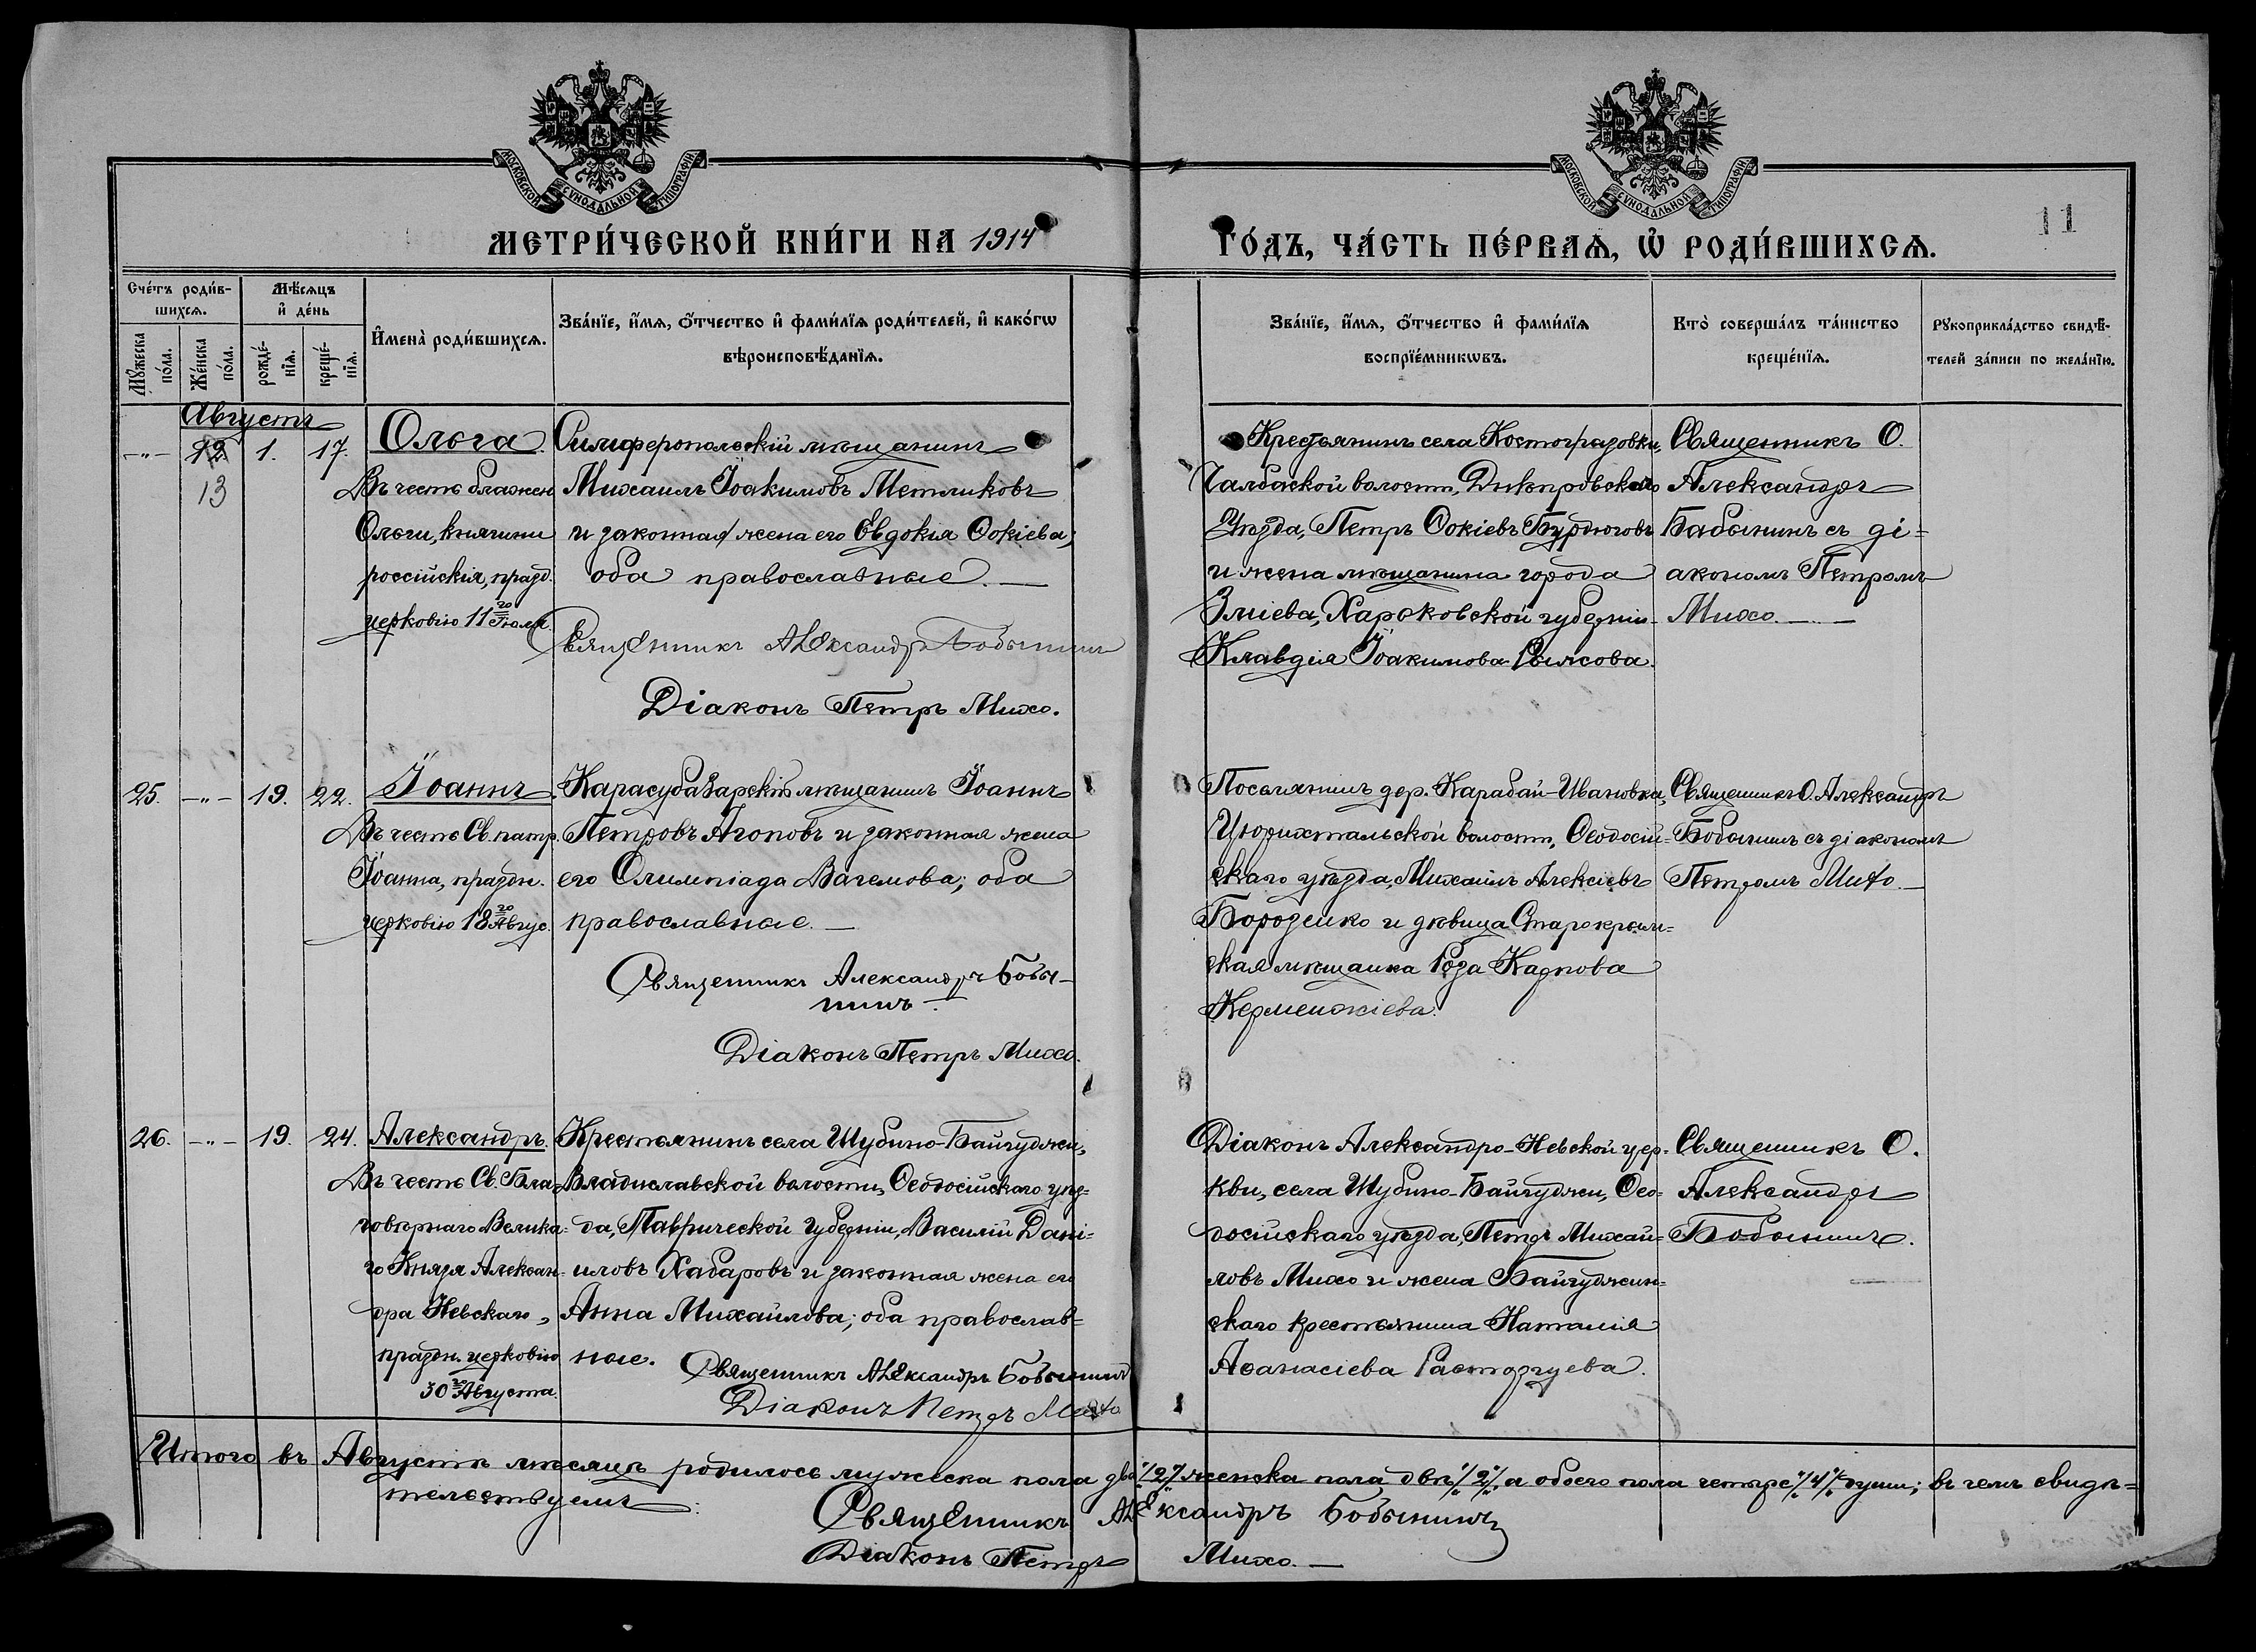 МОСКОВСКОЙ СѴНОДАЛЬНОЙ ТИПОГРАФІИ
МОСКОВСКОЙ СѴНОДАЛЬНОЙ ТИПОГРАФІИ
МЕТРИ́ЧЕСКОЙ КНИ́ГИ НА 1914
ГО́ДЪ, ЧА́СТЬ ПЕ́РВАѦ, Ѡ҆ РОДИ́ВШИХСѦ.
11
Сче́тъ роди́в-
шихсѧ.
Мѣ́сѧцъ
и҆ де́нь
Мꙋ́жеска
по́ла.
Же́нска
по́ла.
рожде́-
нїѧ.
креще́-
нїѧ.
И҆мена̀ роди́вшихсѧ.
Зва́нїе, и҆́мѧ, ѻ҆́тчество и҆ фами́лїѧ роди́телей, и҆ како́гѡ
вѣроисповѣ́данїѧ.
Зва́нїе, и҆́мѧ, ѻ҆́тчество и҆ фами́лїѧ
воспрїе́мникѡвъ.
Кто̀ соверша́лъ та́инство
креще́нїѧ.
Рꙋкоприкла́дство свидѣ́-
телей за́писи по жела́нїю.
Августъ
-"- 12 1. 17.
13
Ольга.
Въ честь блажен.
Ольги, княгини
россійскія, празд.
церковію 11го Іюля.
Симферопольскій мѣщанинъ
Михаилъ Іоакимовъ Метликовъ
и законная жена его Евдокія Ѳокіева;
оба православные.
Священникъ Александръ Бобынинъ
Діаконъ Петръ Михо.
Крестьянинъ села Костогрызовки,
Чалбаской волости, Днѣпровскаго
Уѣзда, Петръ Ѳокіевъ Бурдюговъ
и жена мѣщанина города
Зміева, Харьковской губерніи
Клавдія Іоакимова
Священникъ О.
Александръ
Бабынинъ съ ді=
акономъ Петромъ
Михо.
25. -"- 19. 22.
Іоаннъ.
Въ честь Св. патр.
Іоанна, праздн.
церковію 18го Авгус.
Карасубазарскій мѣщанинъ Іоаннъ
Петровъ Агоповъ и законная жена
его Олимпіада Вагемова; оба
православные.
Священникъ Александръ Бобы-
нинъ.
Діаконъ Петръ Михо.
Поселянинъ дер. Карабай-Ивановка,
Цюрихтальской волости, Ѳеодосій-
скаго уѣзда, Михаилъ Алексіевъ
Бородenко и дѣвица Старокрым=
ская мѣщанка Роза Карпова
Керменжіева.
Священникъ О. Александръ
Бобынинъ съ діакономъ
Петромъ Михо.
26. -"- 19. 24.
Александръ.
Въ честь Св. Бла-
говѣрнаго Велика-
го Князя Алексан-
дра Невскаго,
праздн. церковію
30го Августа.
Крестьянинъ села Шубино-Байгуджи,
Владиславской волости, Ѳеодосійскаго уѣз-
да, Таврической Губерніи, Василій Дані-
иловъ Хабаровъ и законная жена его
Анна Михаилова; оба православ-
ные.
Священникъ Александръ Бобынинъ
Діаконъ Петръ Михо
Діаконъ Александро-Невской цер-
кви, села Шубино-Байгуджи, Ѳео-
досійскаго уѣзда, Петръ Михай-
ловъ Михо и жена Байгуджин-
скаго крестьянина Наталія
Аѳанасіева Расторгуева.
Священникъ О.
Александръ
Бобынинъ.
Итого въ Августѣ мѣсяцѣ родилось мужеска пола два /2/ женска пола двѣ /2/, а обоего пола четыре /4/ души; въ чемъ свидѣ=
тельствуемъ:
Священникъ Александръ Бобынинъ
Діаконъ Петръ Михо.